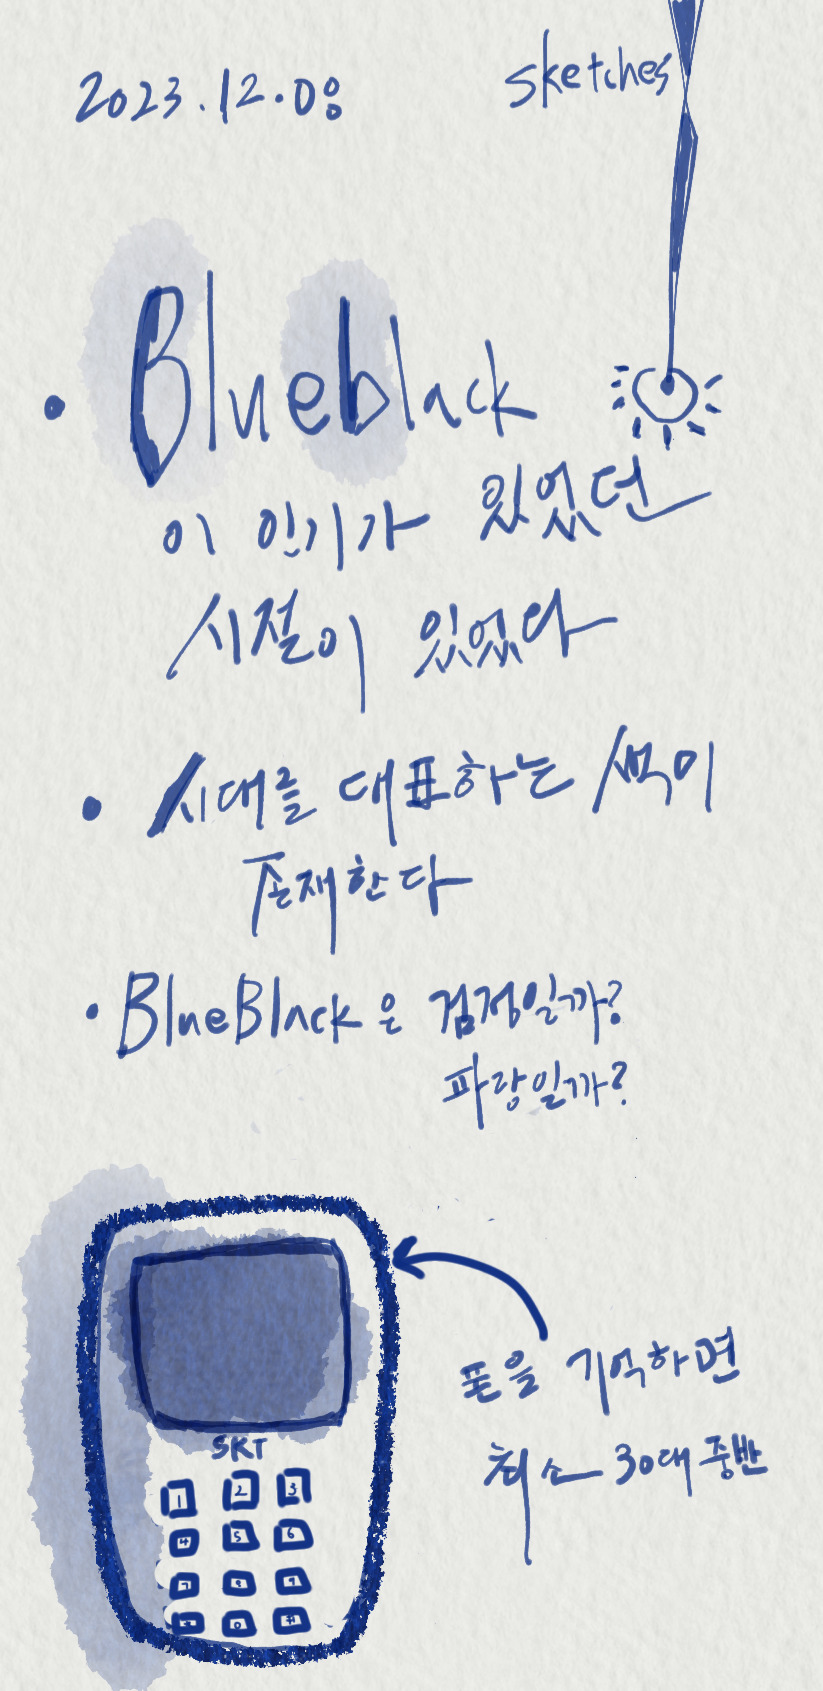 2023.12.08
sketches
• Blueblack
이 인기가 있었던
시절이 있었다
• 시대를 대표하는 색이
존재한다
• BlueBlack은 검정일까?
파랑일까?
폰을 기억하면
최소 30대 중반
SKT
1 2 3
4 5 6
7 8 9
* 0 #